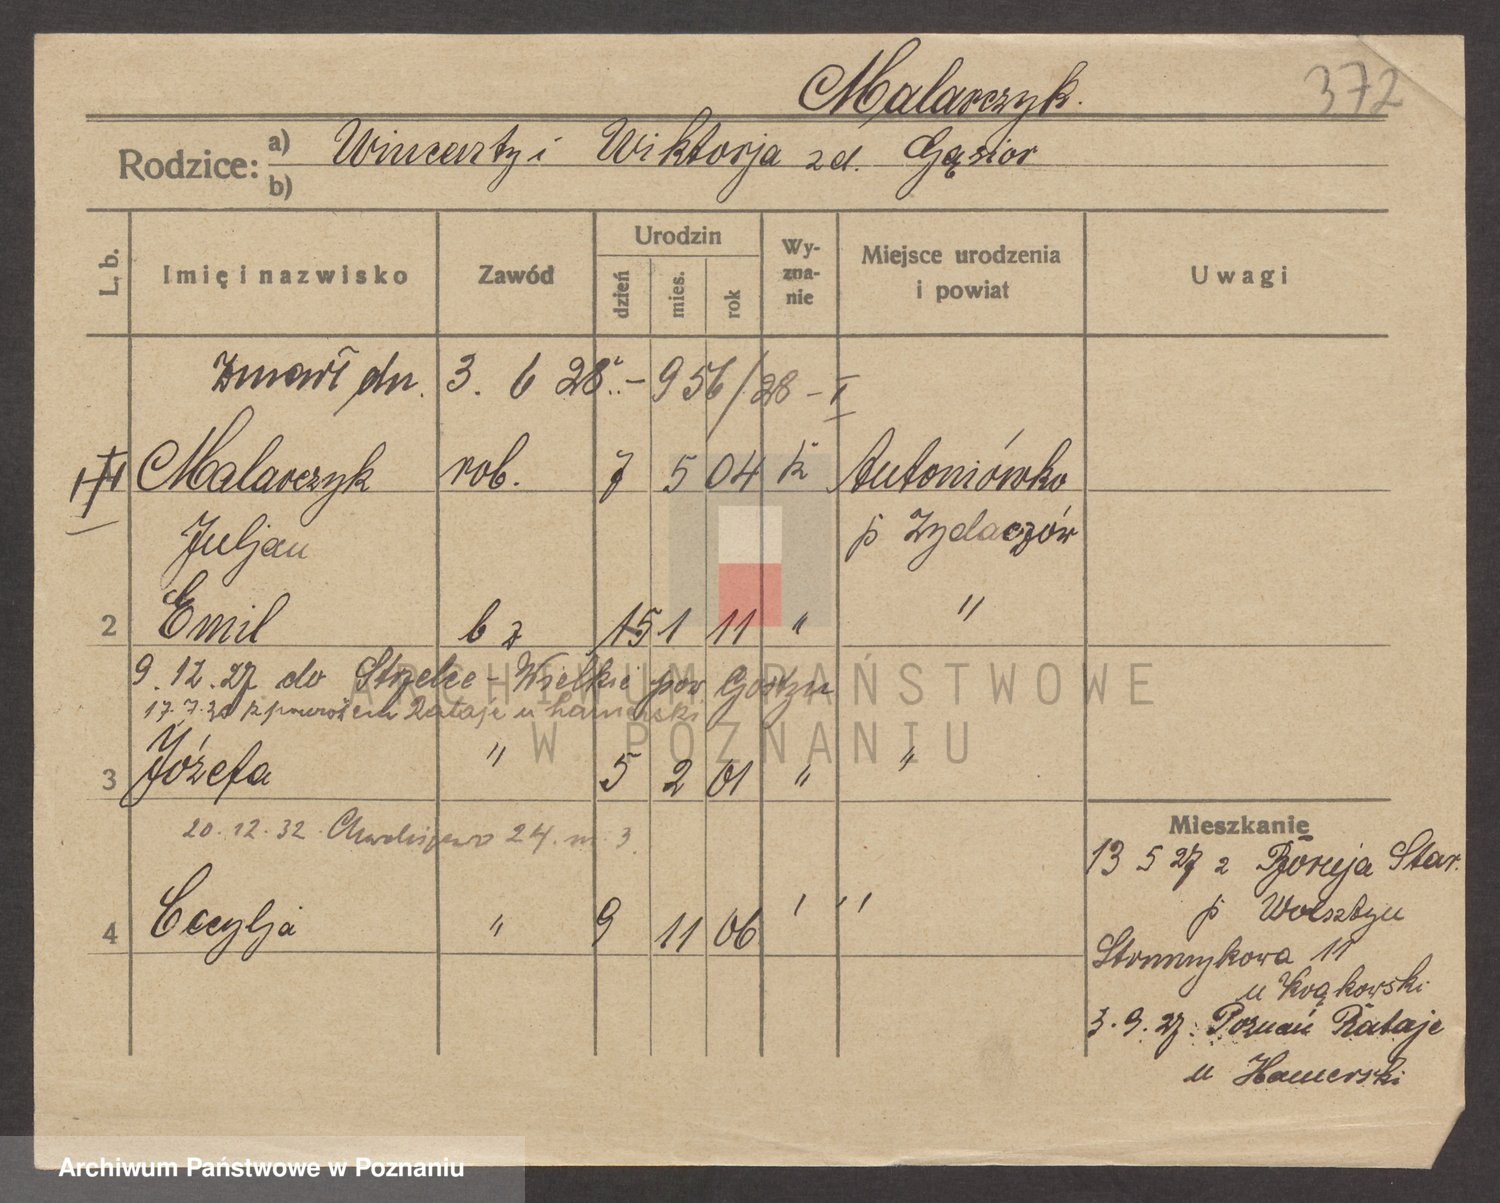 Malarczyk.
372
Rodzice: a) Wincenty i Wiktorja zd. Gąsior
b)
L. b.
Imię i nazwisko
Zawód
Urodzin
dzień
mies.
rok
Wy-
zna-
nie
Miejsce urodzenia
i powiat
Uwagi
Zmarł dn. 3. 6 28 r. – 956/28 – I
Malarczyk rob. 7 5 04 k Antoniówka
Juljan p Zydaczów
2 Emil b z 15 1 11 " "
9.12.27 do Strzelce-Wielkie pow. Gostyn
17.7.30 z powrotem Rataje u Hamerski
3 Józefa " 5 2 01 " "
20.12.32. Chwaliszewo 24. m. 3.
4 Cecylja " 9 11 06 ' ' '
Mieszkanie
13 5 27 z Boruja Star.
p Wolsztyn
Strumykowa 11
u Krąkowski
3.9.27. Poznań Rataje
u Hamerski
ARCHIWUM PAŃSTWOWE
W POZNANIU
Archiwum Państwowe w Poznaniu